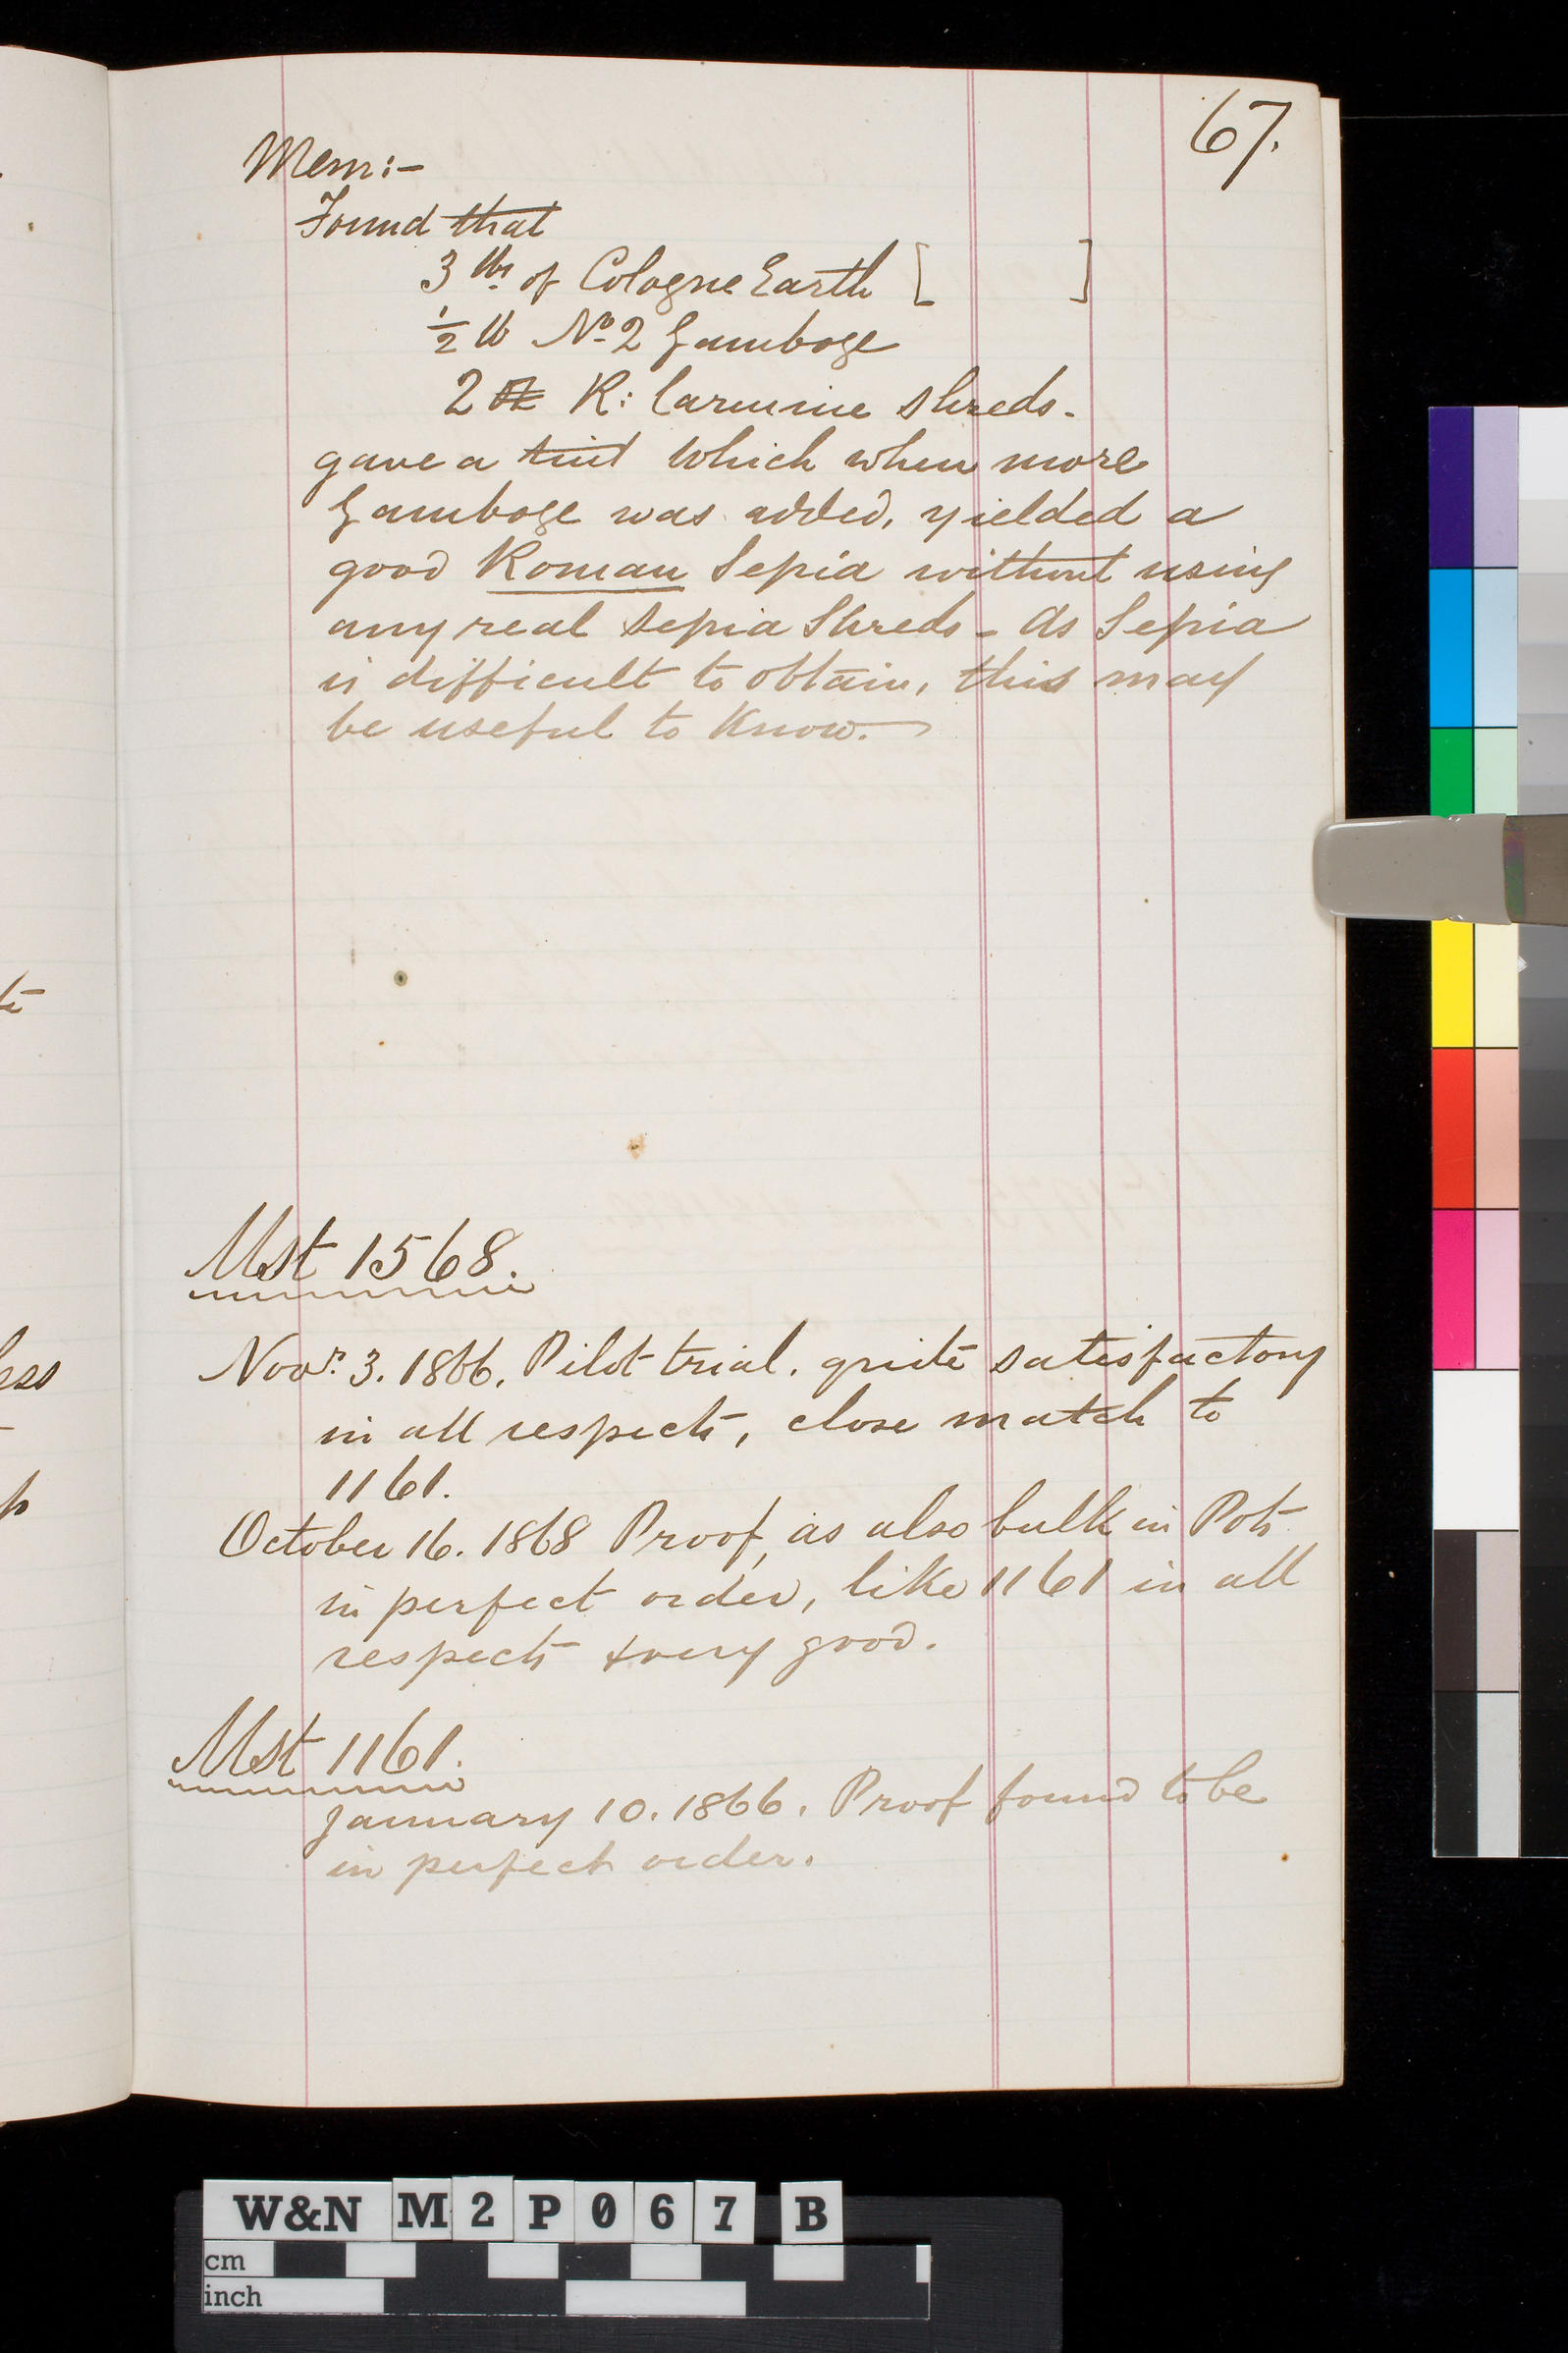 67.
Mem:-
Found that
3 lbs of Cologne Earth [ ]
1/2 lb No 2 Gamboge
2 oz R: Carmine shreds.
gave a tint which when more
Gamboge was added, yielded a
good Roman Sepia without using
any real Sepia Shreds - As Sepia
is difficult to obtain, this may
be useful to Know.
te
Mst 1568.
ess
Novr. 3. 1866. Pilot trial. quite satisfactory
in all respects, close match to
1161.
October 16. 1868 Proof, as also bulk in Pots
in perfect order, like 1161 in all
respects & very good.
Mst 1161.
January 10. 1866. Proof found to be
in perfect order.
W&N M2P067 B
cm
inch